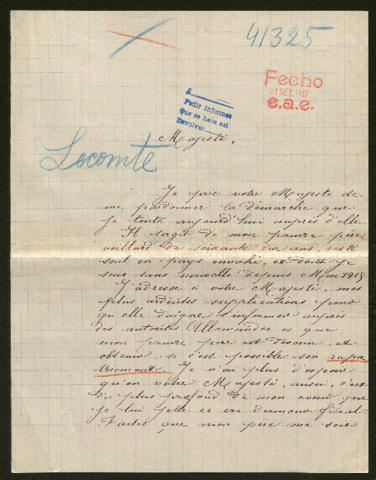 41325
Fecho
SET. 1917
e.a.e.
Pedir informes
Que se hace así
Devolver
Majesté,
Lecomte
Je prie votre Majesté de
me pardonner la démarche que
je tente aujourd'hui auprès d'elle.
Il s'agit de mon pauvre père
vieillard de soixante dix ans, resté
seul en pays envahi, et dont je
suis sans nouvelle depuis Mai 1915
J'adresse à votre Majesté, mes
plus ardentes supplications pour
qu'elle daigne s'informer auprès
des autorités Allemandes ce que
mon pauvre père est devenu et
obtenir si c'est possible son rapa
triement. Je n'ai plus d'espoir
qu'en votre Majesté, aussi, c'est
du plus profond de mon cœur que
je lui jette ce cri d'amour filial.
Faites que mon père me soit